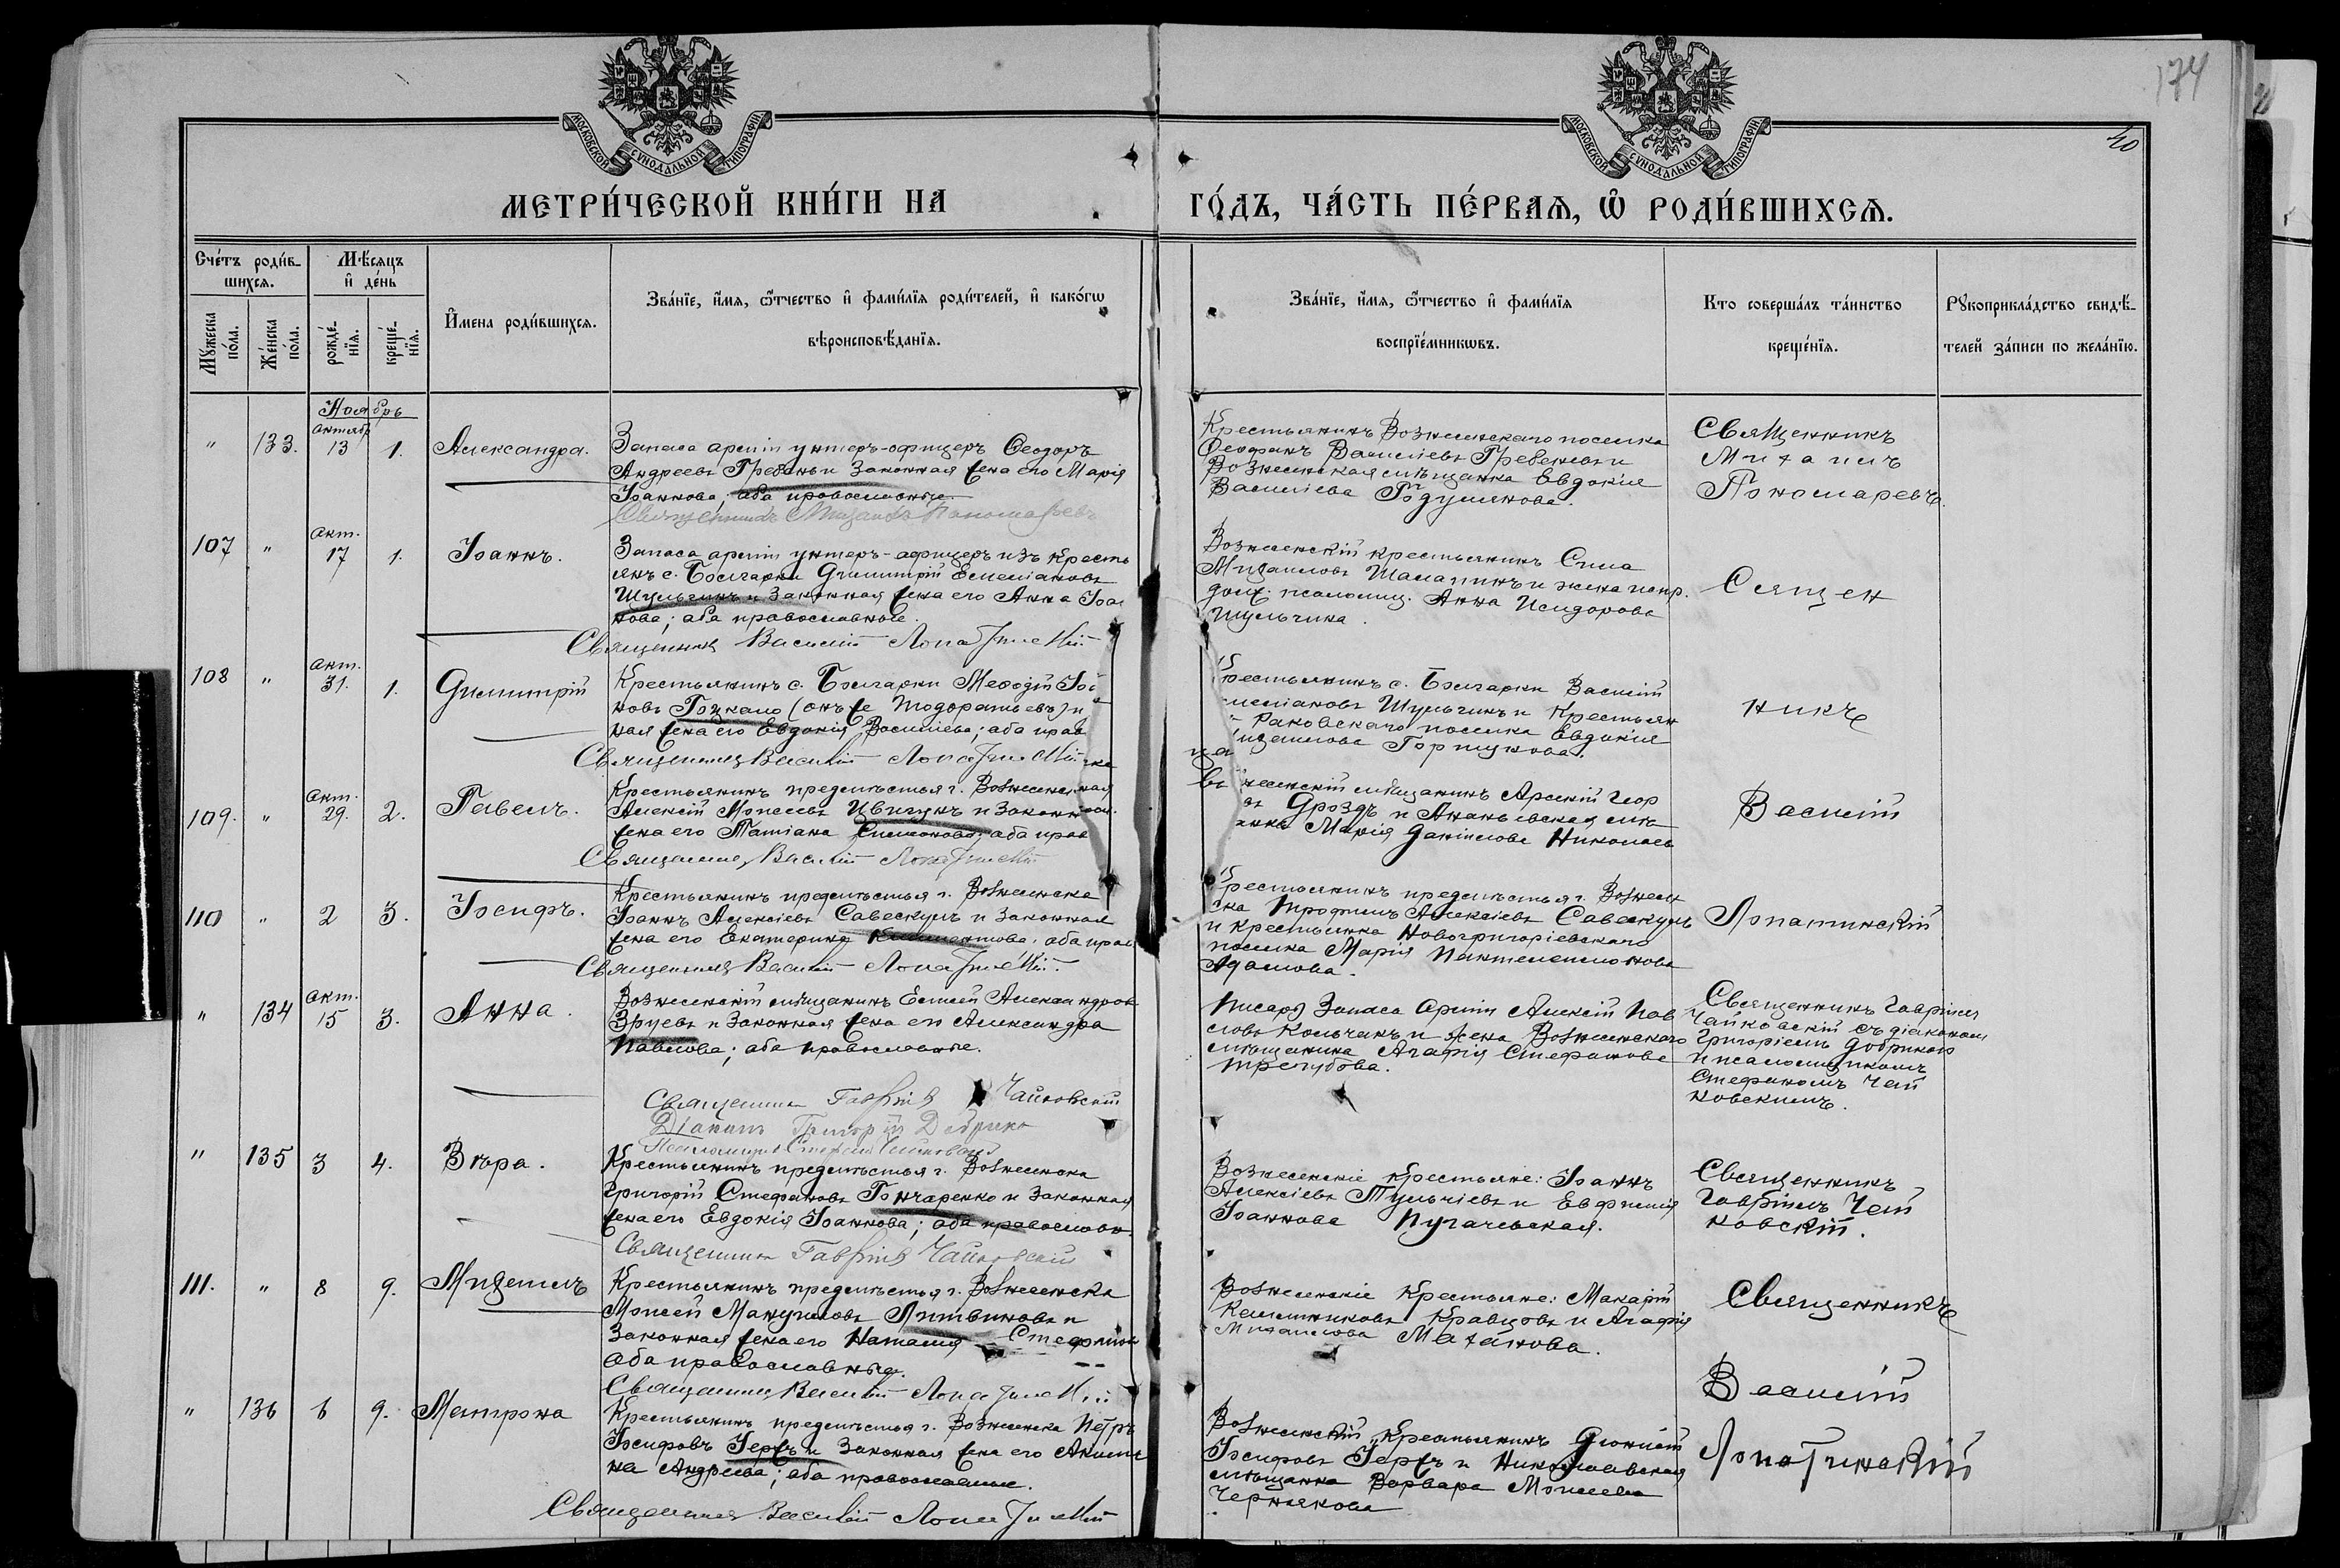 174
40
МОСКОВСКОЙ СѴНОДАЛЬНОЙ ТИПОГРАФІИ
МОСКОВСКОЙ СѴНОДАЛЬНОЙ ТИПОГРАФІИ
МЕТРИ́ЧЕСКОЙ КНИ́ГИ НА
ГО́ДЪ, ЧА́СТЬ ПЕ́РВАѦ, Ѡ҆ РОДИ́ВШИХСѦ.
Сче́тъ роди́в-
шихсѧ.
Мꙋжеска по́ла.
Же́нска по́ла.
Мѣ́сѧцъ
и҆ де́нь
рожде́-
нїѧ.
креще́-
нїѧ.
И҆мена роди́вшихсѧ.
Зва́нїе, и҆́мѧ, ѻ҆́тчество и҆ фами́лїѧ роди́телей, и҆ како́гѡ
вѣроисповѣ́данїѧ.
Зва́нїе, и҆́мѧ, ѻ҆́тчество и҆ фами́лїѧ
воспрїе́мникѡвъ.
Кто соверша́лъ та́инство
креще́нїѧ.
Рꙋкоприкла́дство свидѣ́-
телей за́писи по жела́нїю.
Ноябрь
" 133. октяб 13 1. Александра.
Запаса арміи унтеръ-офицеръ Ѳеодоръ
Андреевъ Гребень и законная жена его Марія
Іоаннова; оба православные.
Священникъ Михаилъ Пономаревъ
Крестьянинъ Вознесенскаго поселка
Ѳеофанъ Василіевъ Гребеневъ и
Вознесенская мѣщанка Евдокія
Василіева Годулянова.
Священникъ
Михаилъ
Пономаревъ.
107 " окт. 17 1. Іоаннъ.
Запаса арміи унтеръ-офицеръ изъ кресть
янъ с. Болгарки Димитрій Емеліановъ
Шульгинъ и законная жена его Анна Іоан
нова; оба православные.
Священникъ Василій Лопатинскій
Вознесенскій крестьянинъ Сила
Михаиловъ Шалагинъ и жена испр.
долж. псаломщ. Анна Исидорова
Шульгина.
Священ
108 " окт. 31. 1. Димитрій
Крестьянинъ с. Болгарки Меѳодій Іоа
новъ Гоцкало (онъ же Тодоратьевъ) и
ная жена его Евдокія Василіева; оба прав
Священникъ Василій Лопатинскій
Крестьянинъ с. Болгарки Василій
меліановъ Шульгинъ и крестьян
Раковскаго поселка Евдокія
ихаилова Горпукова.
никъ
109. " окт. 29. 2. Павелъ.
Крестьянинъ предмѣстья г. Вознесенска
Алексій Моисеевъ Цвигунъ и законная
жена его Татіана Симонова; оба прав
Священникъ Василій Лопатинскій
несенскій мѣщанинъ Арсеній Геор
Дроздъ и Ананьевская мѣ
анка Марія Даніилова Николаев
Василій
110 " 2 3. Іосифъ.
Крестьянинъ предмѣстья г. Вознесенска
Іоаннъ Алексіевъ Савескулъ и законная
жена его Екатерина Климентова; оба прав
Священникъ Василій Лопатинскій.
Крестьянинъ предмѣстья г. Вознесен
ска Трофимъ Алексіевъ Савескулъ
и крестьянка Новогригоріевскаго
поселка Марія Пантелеимонова
Адамова.
Лопатинскій
" 134 окт. 15 3. Анна.
Вознесенскій мѣщанинъ Евсей Александров
Зруевъ и законная жена его Александра
Павлова; оба православные.
Священникъ Гавріилъ Чайковскій
Діаконъ Григорій Добрико
Псаломщикъ Стефанъ Чайковскій
Писарь запаса арміи Алексій Пав
ловъ Кольчакъ и жена Вознесенскаго
мѣщанина Агафія Стефанова
Трегубова.
Священникъ Гавріилъ
Чайковскій съ діакономъ
Григоріемъ Добрикою
и псаломщикомъ
Стефаномъ Чай
ковскимъ.
" 135 3 4. Вѣра.
Крестьянинъ предмѣстья г. Вознесенска
Григорій Стефановъ Гончаренко и законная
жена его Евдокія Іоаннова; оба православн.
Священникъ Гавріилъ Чайковскій
Вознесенскіе крестьяне: Іоаннъ
Алексіевъ Тульчіевъ и Евфимія
Іоаннова Пугачевская.
Священникъ
Гавріилъ Чай
ковскій.
111. " 8 9. Михаилъ
Крестьянинъ предмѣстья г. Вознесенска
Моисей Мануиловъ Литвиновъ и
законная жена его Наталія Стефанов
оба православные.
Священникъ Василій Лопатинскій
Вознесенскіе крестьяне: Макарій
Калинниковъ Кравцовъ и Агафія
Михаилова Маханова.
Священникъ
Василій
" 136 6 9. Матрона
Крестьянинъ предмѣстья г. Вознесенска Петръ
Іосифовъ Іержъ и законная жена его Акили
на Андреева; оба православные.
Священникъ Василій Лопатинскій
Вознесенскій крестьянинъ Діонисій
Іосифовъ Іержъ и Николаевская
мѣщанка Варвара Моисеева
Чернякова
Лопатинскій